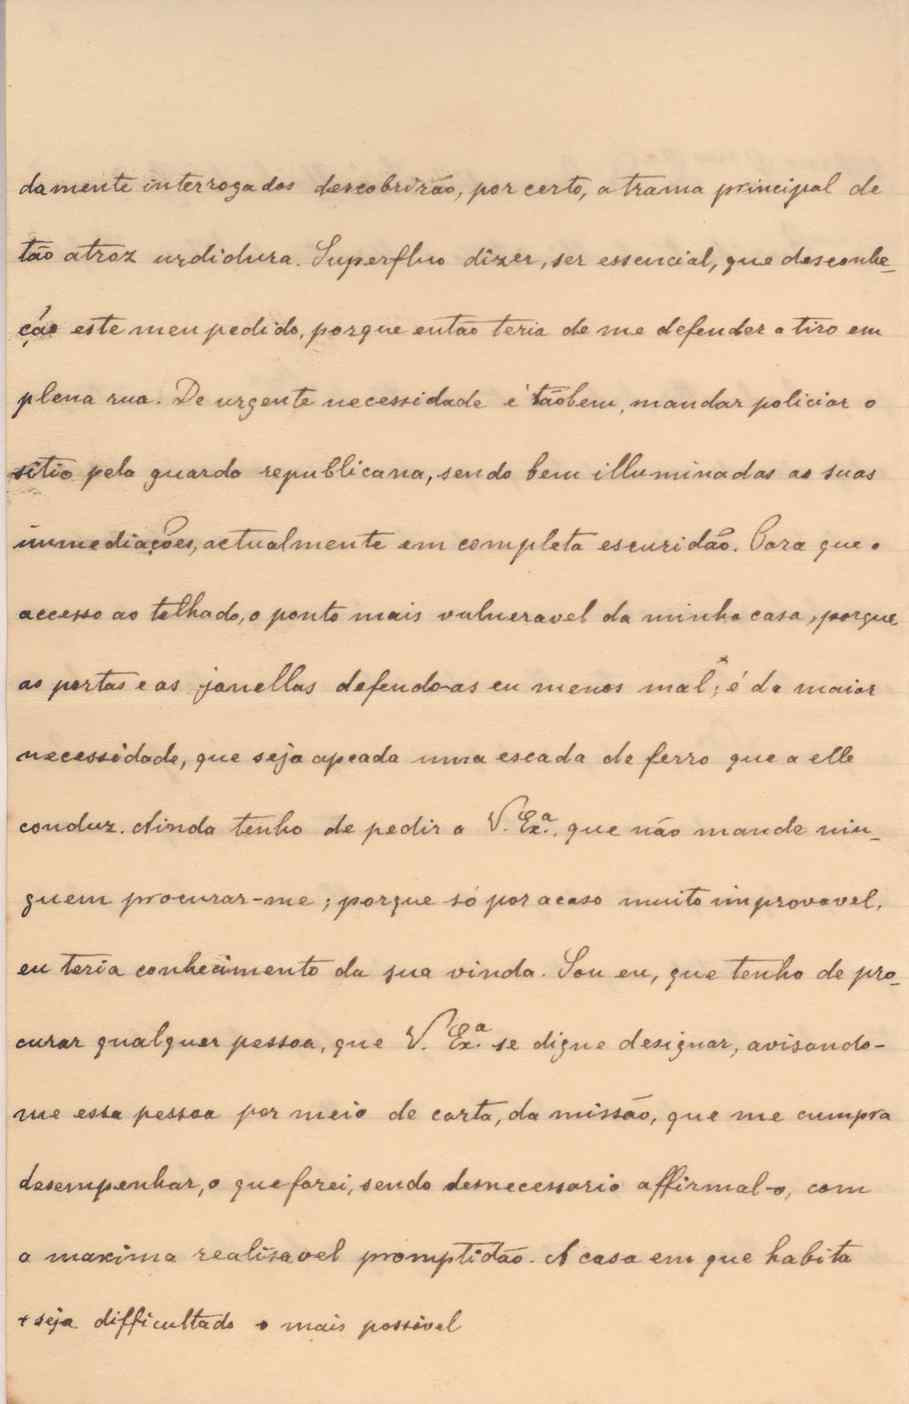 damente interrogados descobrirão, por certo, a trama principal de
tão atroz urdidura. Superfluo dizer, ser essencial, que desconhe-
ção este meu pedido, porque então teria de me defender a tiro em
plena rua. De urgente necessidade é tãobem, mandar policiar o
sitio pela guarda republicana, sendo bem illuminadas as suas
immediações, actualmente em completa escuridão. Para que o
accesso ao telhado, o ponto mais vulneravel da minha casa, porque
as portas e as janellas defendo-as eu menos mal,ˣ é da maior
necessidade, que seja apeada uma escada de ferro que a elle
conduz. Ainda tenho de pedir a V. Ex.ª, que não mande nin-
guem procurar-me; porque só por acaso muito improvavel,
eu teria conhecimento da sua vinda. Sou eu, que tenho de pro-
curar qualquer pessoa, que V. Ex.ª se digne designar, avisando-
me essa pessoa por meio de carta, da missão, que me cumpra
desempenhar, o que farei, sendo desnecessario affirmal-o, com
a maxima realisavel promptidão. A casa em que habita
+ seja difficultado o mais possivel